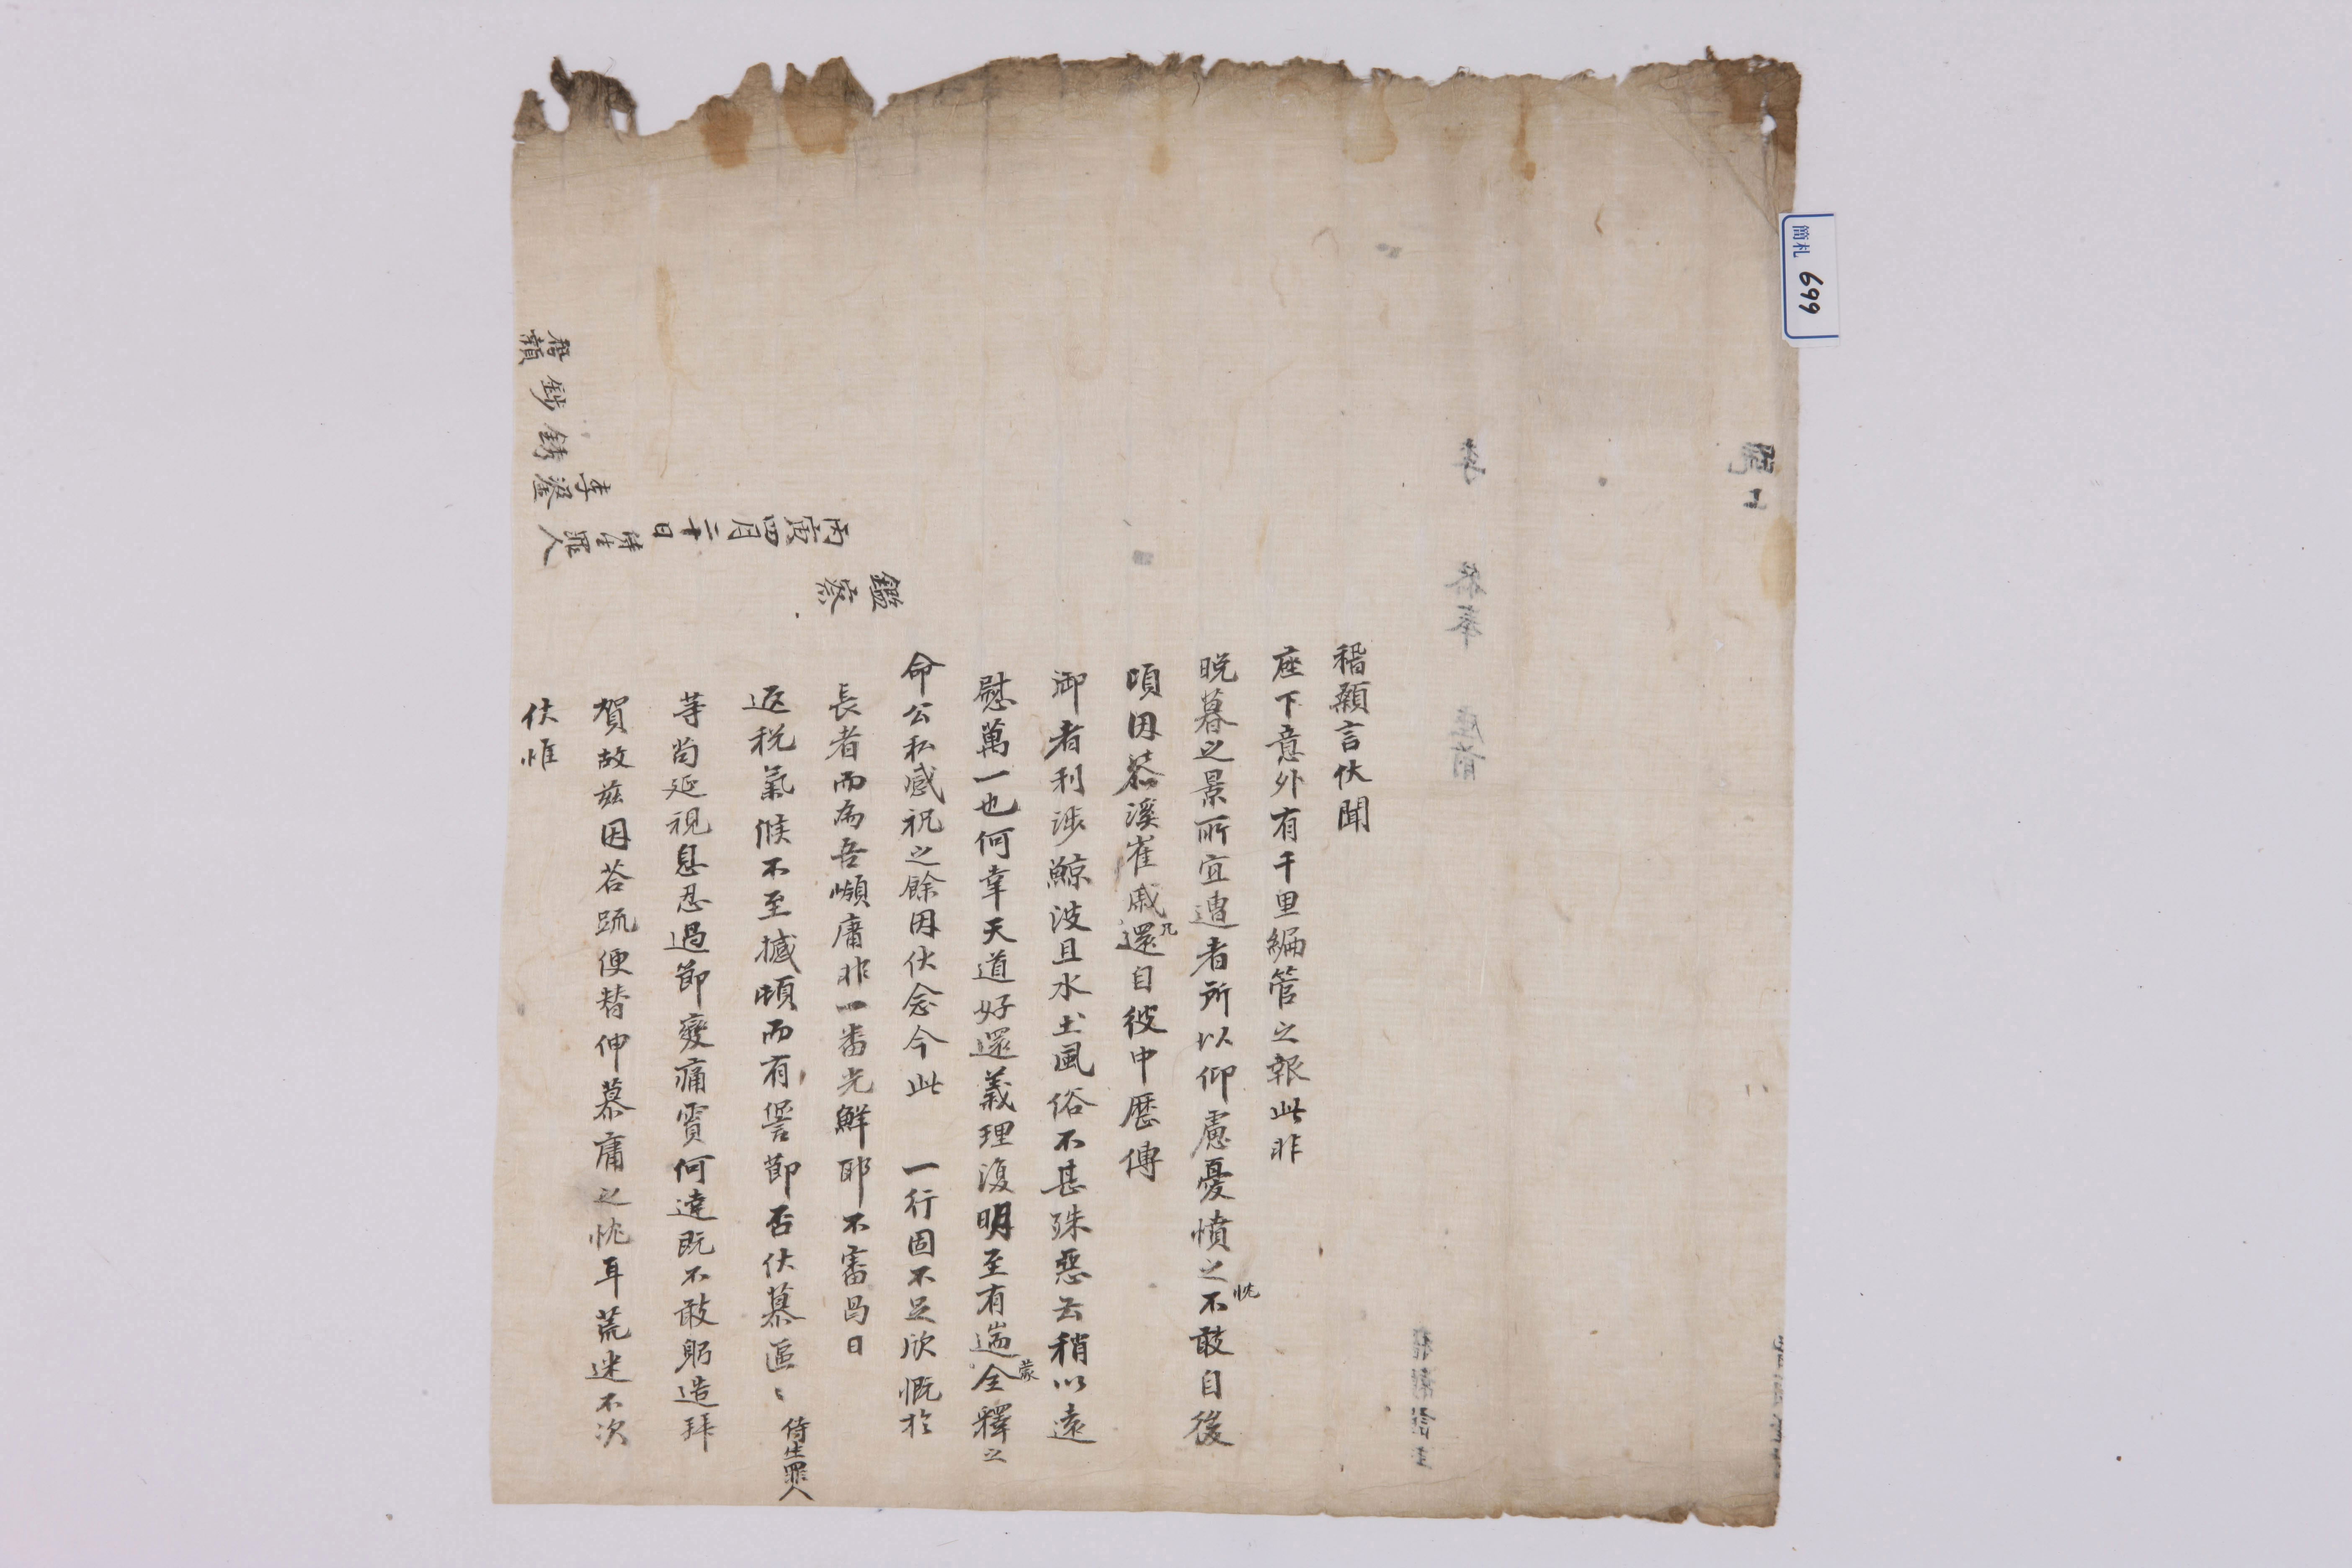 稽顙言伏聞
座下意外有千里編管之報此非
晩暮之景所宜遭者所以仰慮憂憤之忱不敢自後
頃因慕溪崔戚兄還自彼中歷傳
御者利涉鯨波且水土風俗不甚殊惡云稍以遠
慰萬一也何幸天道好還義理復明至有遄蒙全釋之
命公私感祝之餘因伏念今此 一行固不足欣慨於
長者而為吾嶺庸非一番光鮮耶不審曷日
返稅氣候不至撼頓而有損節否伏慕區〻侍生罪人
等尚延視息忍過節變痛霣何達既不敢躬造拜
賀故茲因荅疏便替伸慕庸之忱耳荒迷不次
伏惟
鑑察
丙寅四月二十日侍生罪人
李
鉁 銹
稽顙
簡札 699